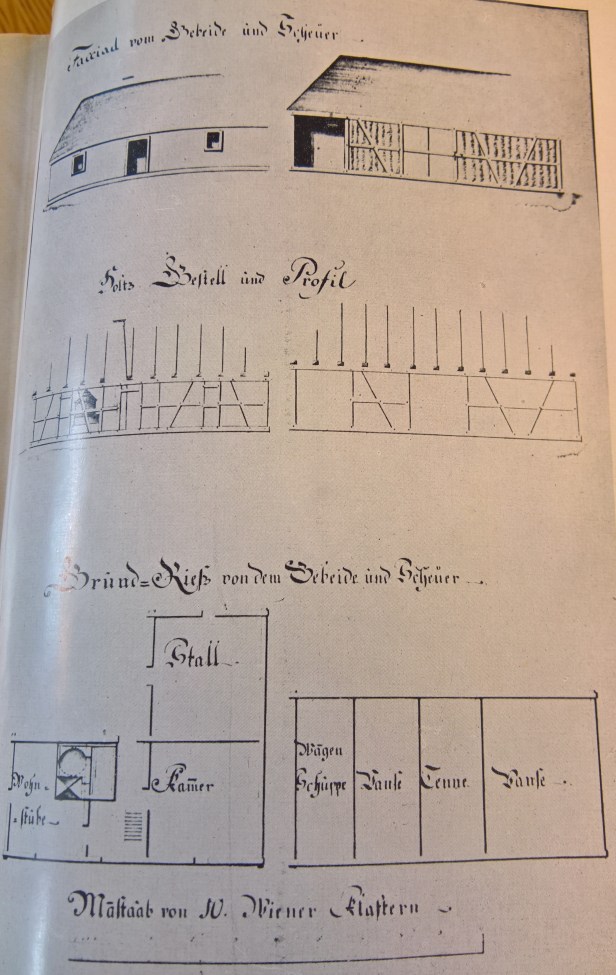 Facciad vom Gebeide und Scheüer
Holtz Gestell und Profil
Grund=Rieß von dem Gebeide und Scheüer
Stall
Wohn-
stube
Kam̄er
Wägen
Schüppe
Banse
Tenne
Banse
Maßtaab von 10. Wiener Klaftern